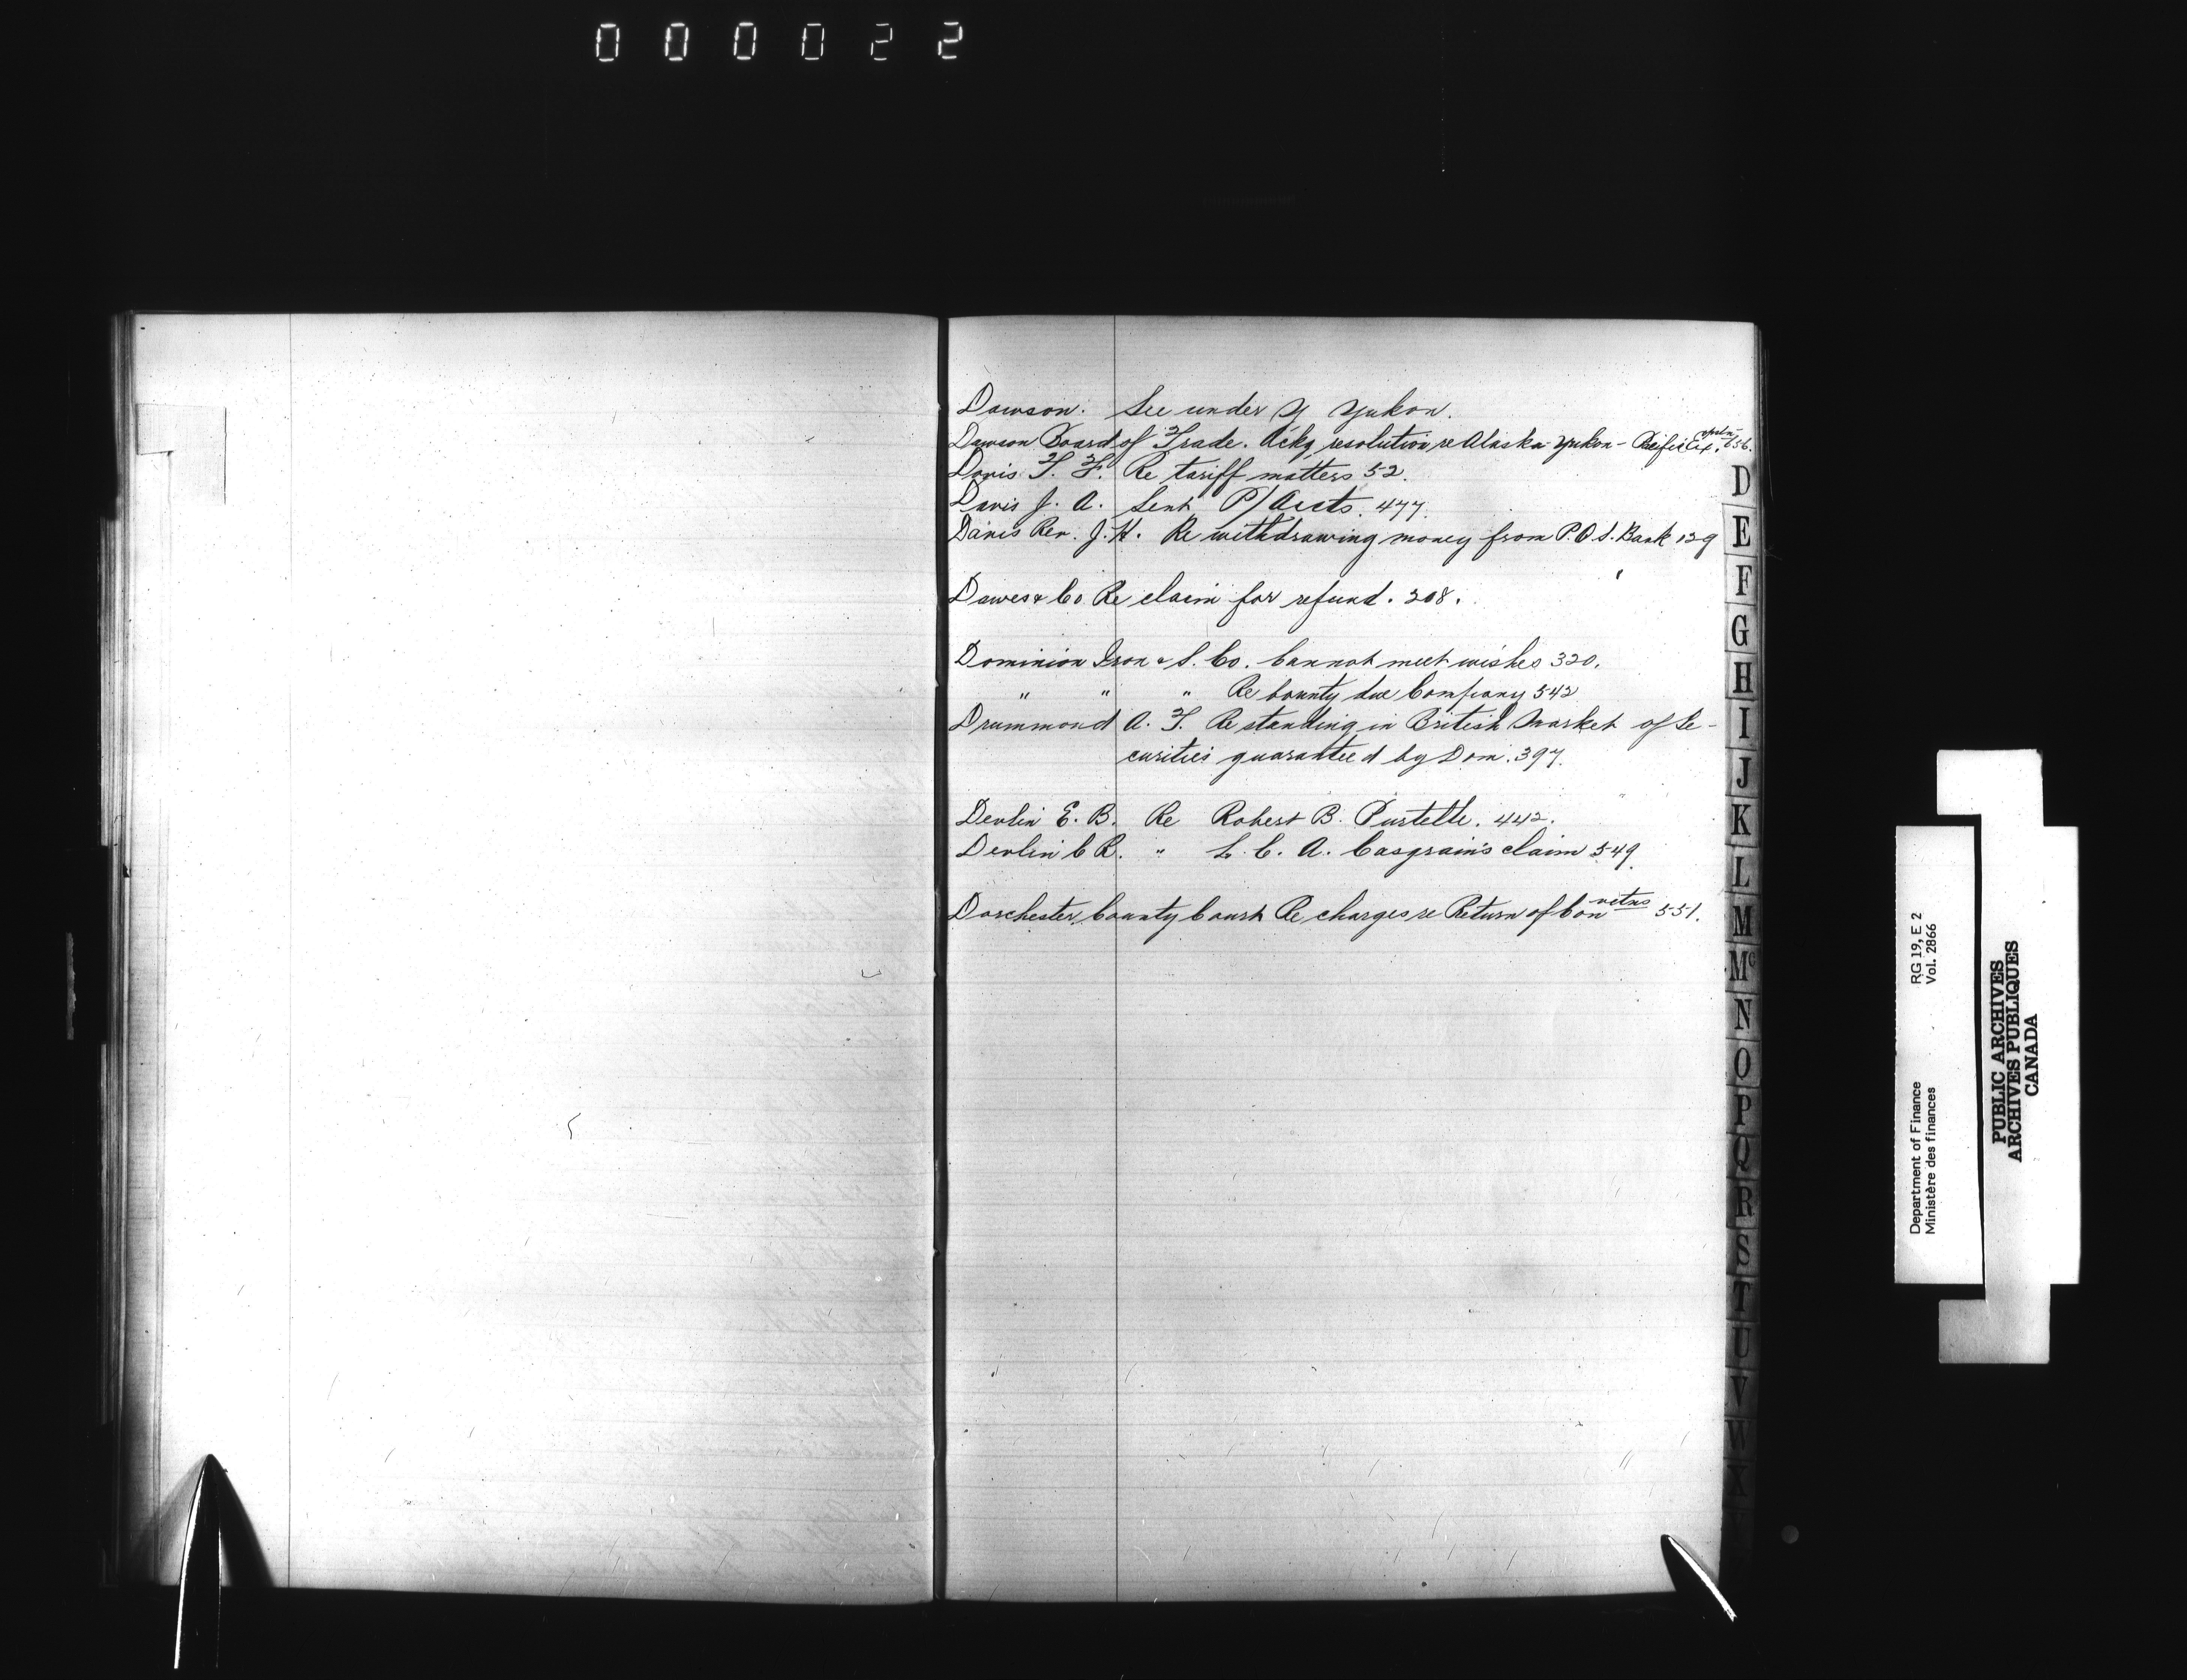 000022
Dawson. See under Y Yukon.
Dawson Board of Trade. Ackg resolution re Alaska-Yukon-Pacific Ex. 656.
Davis T. F. Re tariff matters 52.
Davis J. A. Sent P/Accts. 477.
Davis Rev. J. H. Re withdrawing money from P.O.S. Bank 139
Dawes & Co Re claim for refund. 308.
Dominion Iron & S. Co. Cannot meet wishes 320.
" " " Re bounty due Company 542
Drummond A. T. Re standing in British Market of Se-
curities guaranteed by Dom. 397.
Devlin E. B. Re Robert B. 442.
Devlin C R. " L. C. A. Casgrain's claim 549.
Dorchester County Court Re charges re Return of Convictns 551.
D
E
F
G
H
I
J
K
L
M
Mc
N
O
P
Q
R
S
T
U
V
W
X
Department of Finance RG 19, E 2
Ministère des finances Vol. 2866
PUBLIC ARCHIVES
ARCHIVES PUBLIQUES
CANADA